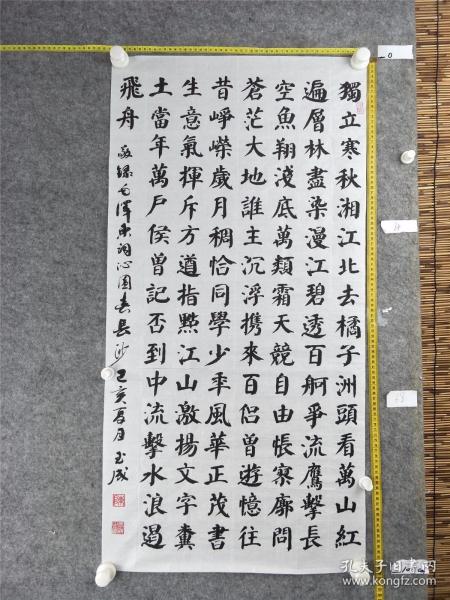 獨立寒秋湘江北去橘子洲頭看萬山紅
遍層林盡染漫江碧透百舸爭流鷹擊長
空魚翔淺底萬類霜天競自由悵寥廓問
蒼茫大地誰主沉浮携來百侶曾遊憶往
昔崢嶸歲月稠恰同學少年風華正茂書
生意氣揮斥方遒指點江山激揚文字糞
土當年萬戶侯曾記否到中流擊水浪遏
飛舟
錄毛澤東詞沁園春長沙己亥夏月玉成
孔夫子旧书网
kongfz.com